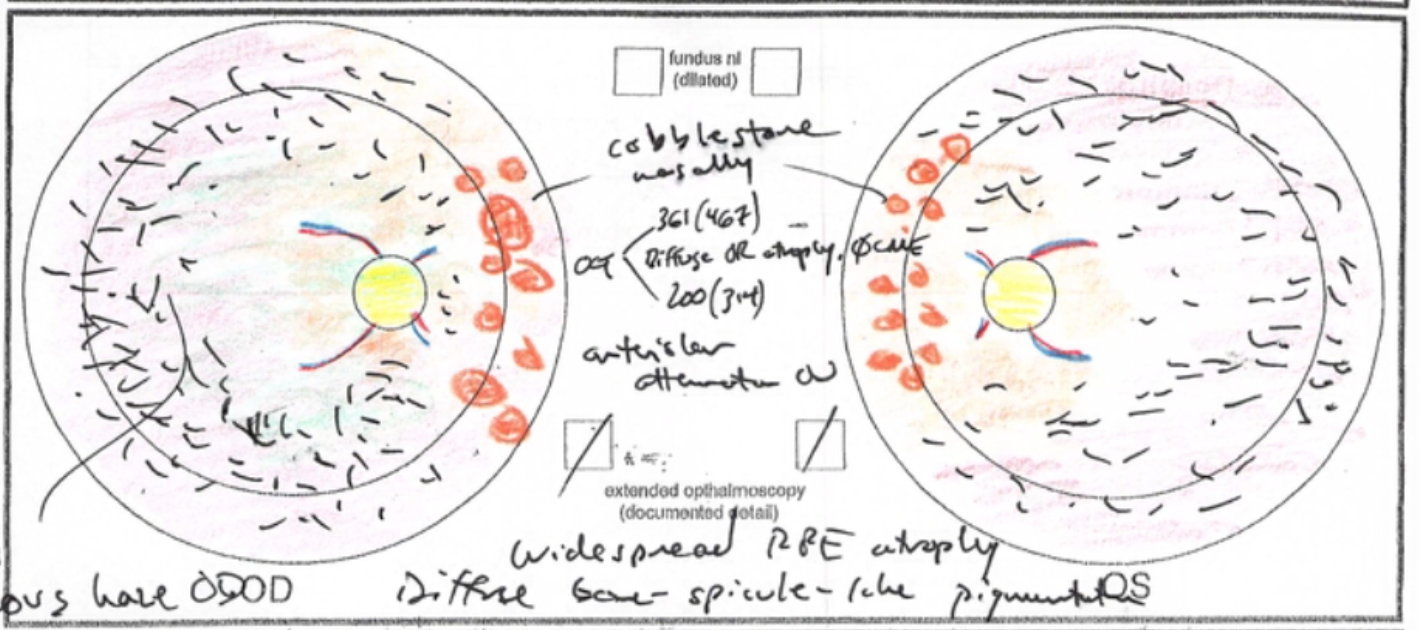 fundus nl
(dilated)
cobblestone
nasally
361 (467)
OCT Diffuse OR atrophy, ØCME
200 (314)
arteriolar
attenuation OU
extended opthalmoscopy
(documented detail)
widespread RPE atrophy
haze OD OD Diffuse bone-spicule-like pigmentation OS